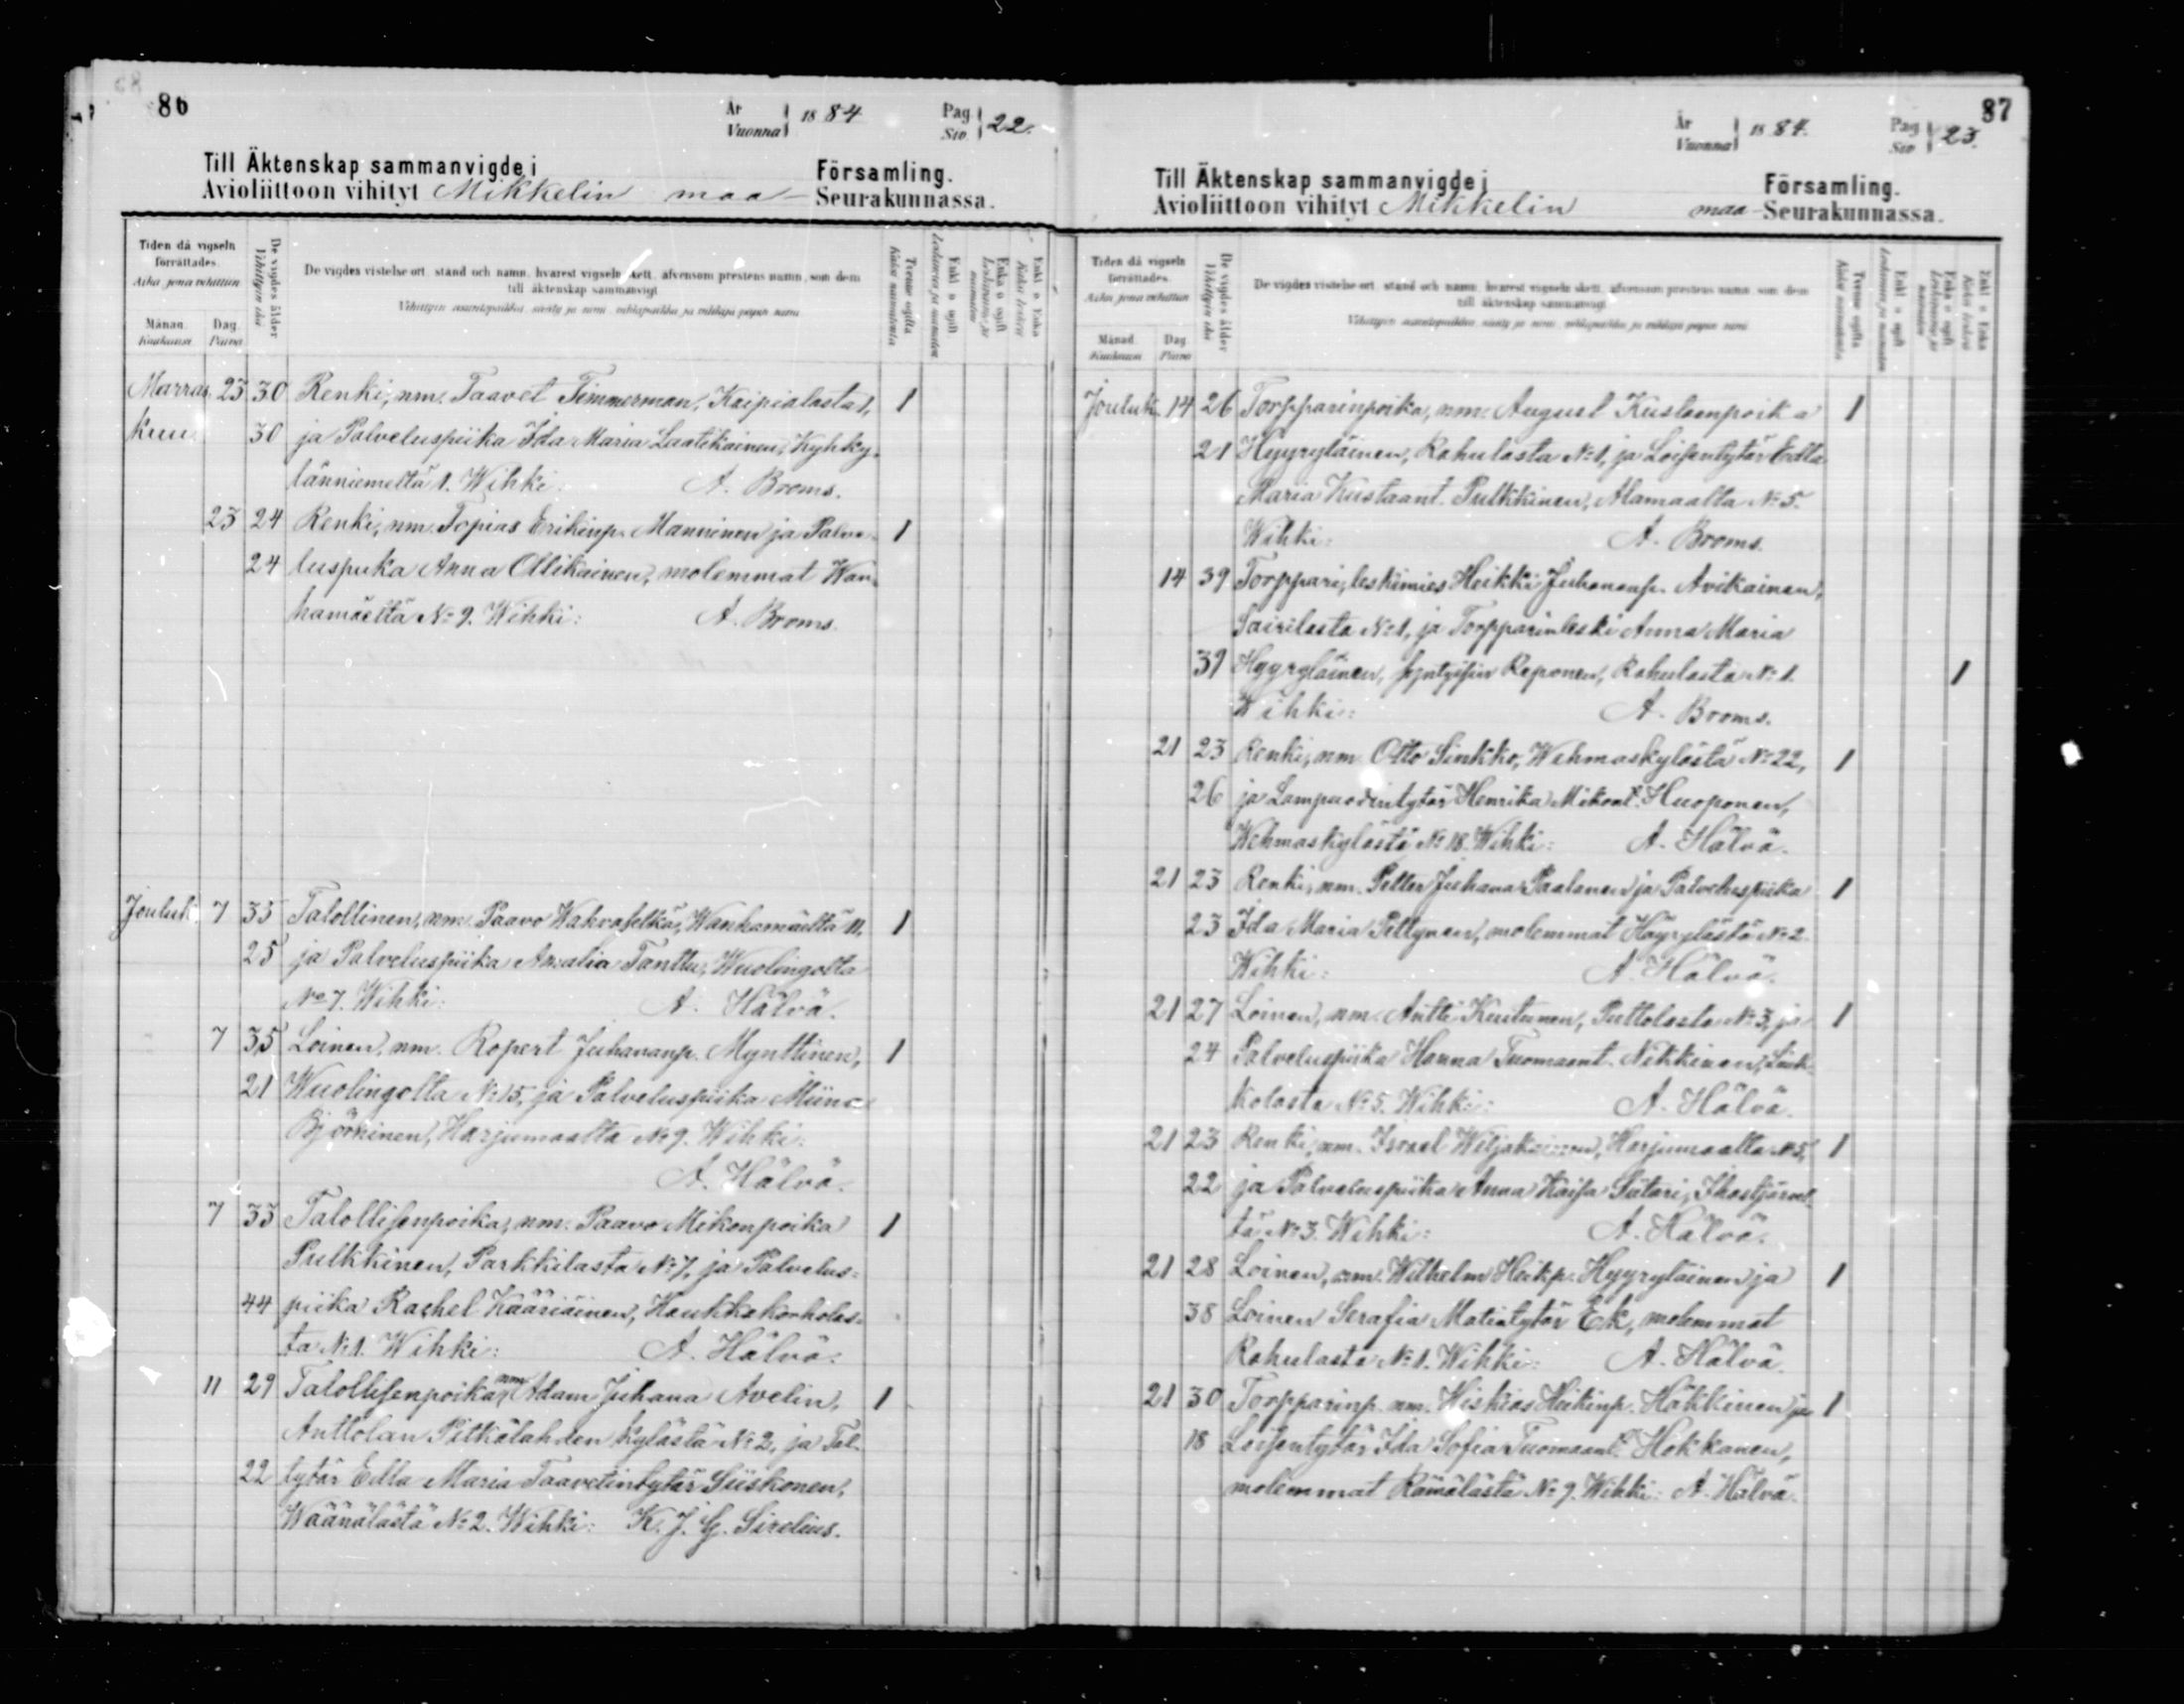 86
År Vuonna 1884
Pag. Siv. 22.
Till Äktenskap sammanvigde i Församling.
Avioliittoon vihityt Mikkelin maa- Seurakunnassa.
Tiden då vigseln förrättades.
Aika, jona vihittiin
Månad. Kuukausi
Dag. Päivä
De vigdes ålder
Vihittyin ikä
De vigdes vistelseort, stånd och namn, hvarest vigseln skett, äfvensom prestens namn, som dem
till äktenskap sammanvigt
Vihittyin asuntopaikka, sääty ja nimi, vihkipaikka ja vihkijä papin nimi
Tvenne ogifta
Kaksi naimatonta
Enkl. o. ogift
Leskimies ja naimaton
Enka o. ogift
Enkl. o. Enka
Kaksi leskeä
Marras 23 30 Renki, nm. Taavet Timmerman, Kaipialasta 1, 1
kuu. 30 ja Palveluspiika Ida Maria Laatikainen, Kyhky-
länniemeltä 1. Wihki: A. Broms.
23 24 Renki, nm. Topias Erikinp. Manninen ja Palve- 1
24 luspiika Anna Ollikainen, molemmat Wan-
hamäeltä No 9. Wihki: A. Broms.
Jouluk. 7 35 Talollinen, nm. Paavo Wahvaselkä, Wanhamäeltä 11, 1
25 ja Palveluspiika Amalia Tanttu, Wuolingolta
No 7. Wihki: A. Hälvä.
7 35 Loinen, nm. Ropert Juhananp. Mynttinen, 1
21 Wuolingolta No 15, ja Palveluspiika Miina
Björninen, Harjumaalta No 9. Wihki:
A. Hälvä.
7 33 Talollisenpoika, nm. Paavo Mikonpoika 1
Pulkkinen, Parkkilasta No 7, ja Palvelus-
44 piika Rachel Kääriäinen, Haukkakorholas-
ta No 1. Wihki: A. Hälvä.
11 29 Talollisenpoika, nm. Adam Juhana Avelin, 1
Anttolan Pitkälahden kylästä No 2, ja Tal.
22 tytär Edla Maria Taavetintytär Siiskonen,
Wäänälästä No 2. Wihki: K. J. G. Sirelius.
87
År Vuonna 1884.
Pag. Siv. 23.
Till Äktenskap sammanvigde i Församling.
Avioliittoon vihityt Mikkelin maa- Seurakunnassa.
Tiden då vigseln förrättades.
Aika, jona vihittiin
Månad. Kuukausi
Dag. Päivä
De vigdes ålder
Vihittyin ikä
De vigdes vistelseort, stånd och namn, hvarest vigseln skett, äfvensom prestens namn, som dem
till äktenskap sammanvigt
Vihittyin asuntopaikka, sääty ja nimi, vihkipaikka ja vihkijä papin nimi
Tvenne ogifta
Kaksi naimatonta
Enkl. o. ogift
Leskimies ja naimaton
Enka o. ogift
Enkl. o. Enka
Kaksi leskeä
Jouluk. 14 26 Torpparinpoika, nm. August Kustaanpoika 1
21 Hyyryläinen, Rahulasta No 1, ja Loisentytär Edla
Maria Kustaant. Pulkkinen, Alamaalta No 5.
Wihki: A. Broms.
14 39 Torppari, leskimies Heikki Juhananp. Avikainen,
Sairilasta No 1, ja Torpparinleski Anna Maria
39 Hyyryläinen, syntyisin Reponen, Rahulasta No 1. 1
Wihki: A. Broms.
21 23 Renki, nm. Otto Sinkko, Wehmaskylästä No 22, 1
26 ja Lampuodintytär Henrika Mikont. Huoponen,
Wehmaskylästä No 18. Wihki: A. Hälvä.
21 23 Renki, nm. Petter Juhana Paalanen ja Palveluspiika 1
23 Ida Maria Pettynen, molemmat Häyrylästä No 2.
Wihki: A. Hälvä.
21 27 Loinen, nm. Antti Kuitunen, Puttolasta No 3, ja 1
24 Palveluspiika Hanna Tuomaant. Nikkinen,
kolasta No 5. Wihki: A. Hälvä.
21 23 Renki, nm. Israel Wiljakainen, Harjumaalta No 5, 1
22 ja Palveluspiika Anna Kaisa Sätäri, Ihastjärvel-
tä No 3. Wihki: A. Hälvä.
21 28 Loinen, nm. Wilhelm Heikp. Hyyryläinen ja 1
38 Loinen Serafia Matintytär Ek, molemmat
Rahulasta No 1. Wihki: A. Hälvä.
21 30 Torpparinp. nm. Hiskias Heikinp. Häkkinen ja 1
18 Loisentytär Ida Sofia Tuomaant. Hokkanen,
molemmat Rämälästä No 9. Wihki: A. Hälvä.